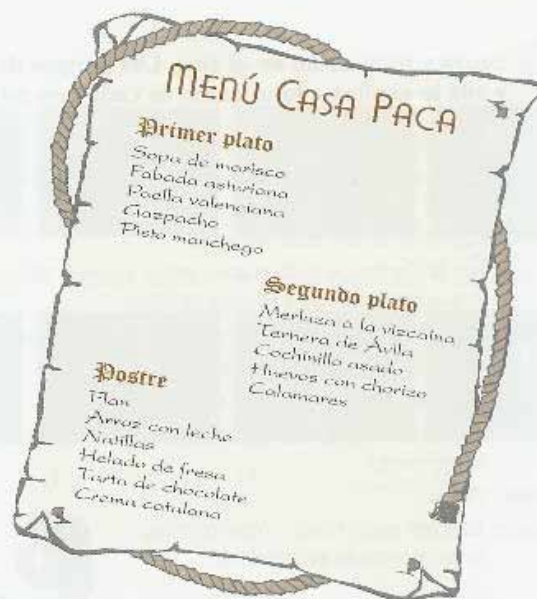 MENÚ CASA PACA
Primer plato
Sopa de marisco
Fabada asturiana
Paella valenciana
Gazpacho
Pisto manchego
Segundo plato
Merluza a la vizcaína
Ternera de Ávila
Cochinillo asado
Huevos con chorizo
Calamares
Postre
Flan
Arroz con leche
Natillas
Helado de fresa
Tarta de chocolate
Crema catalana